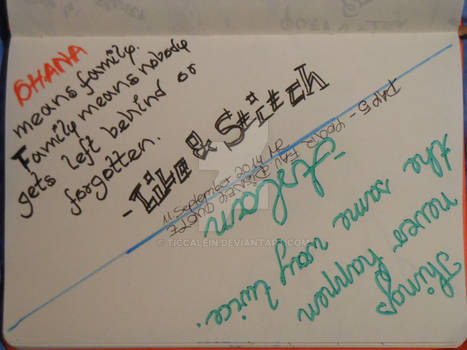 OHANA
means family.
Family means nobody
gets left behind or
forgotten.
- Lilo & Stitch
DAY 5 - YOUR FAV DISNEY QUOTE
11 September
Things
never happen
the same way twice.
- Aslan
© TICCALEIN.DEVIANTART.COM